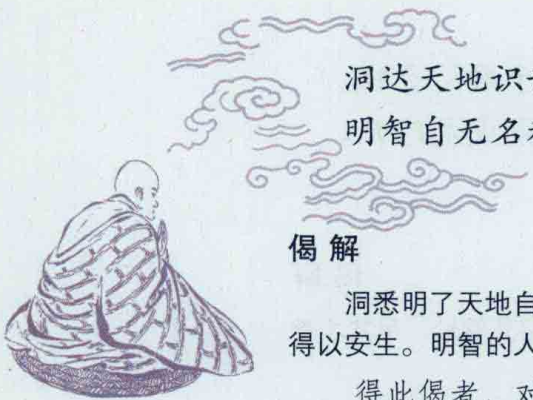 洞达天地识
明智自无名
偈解
洞悉明了天地自
得以安生。明智的人
得此偈者，对